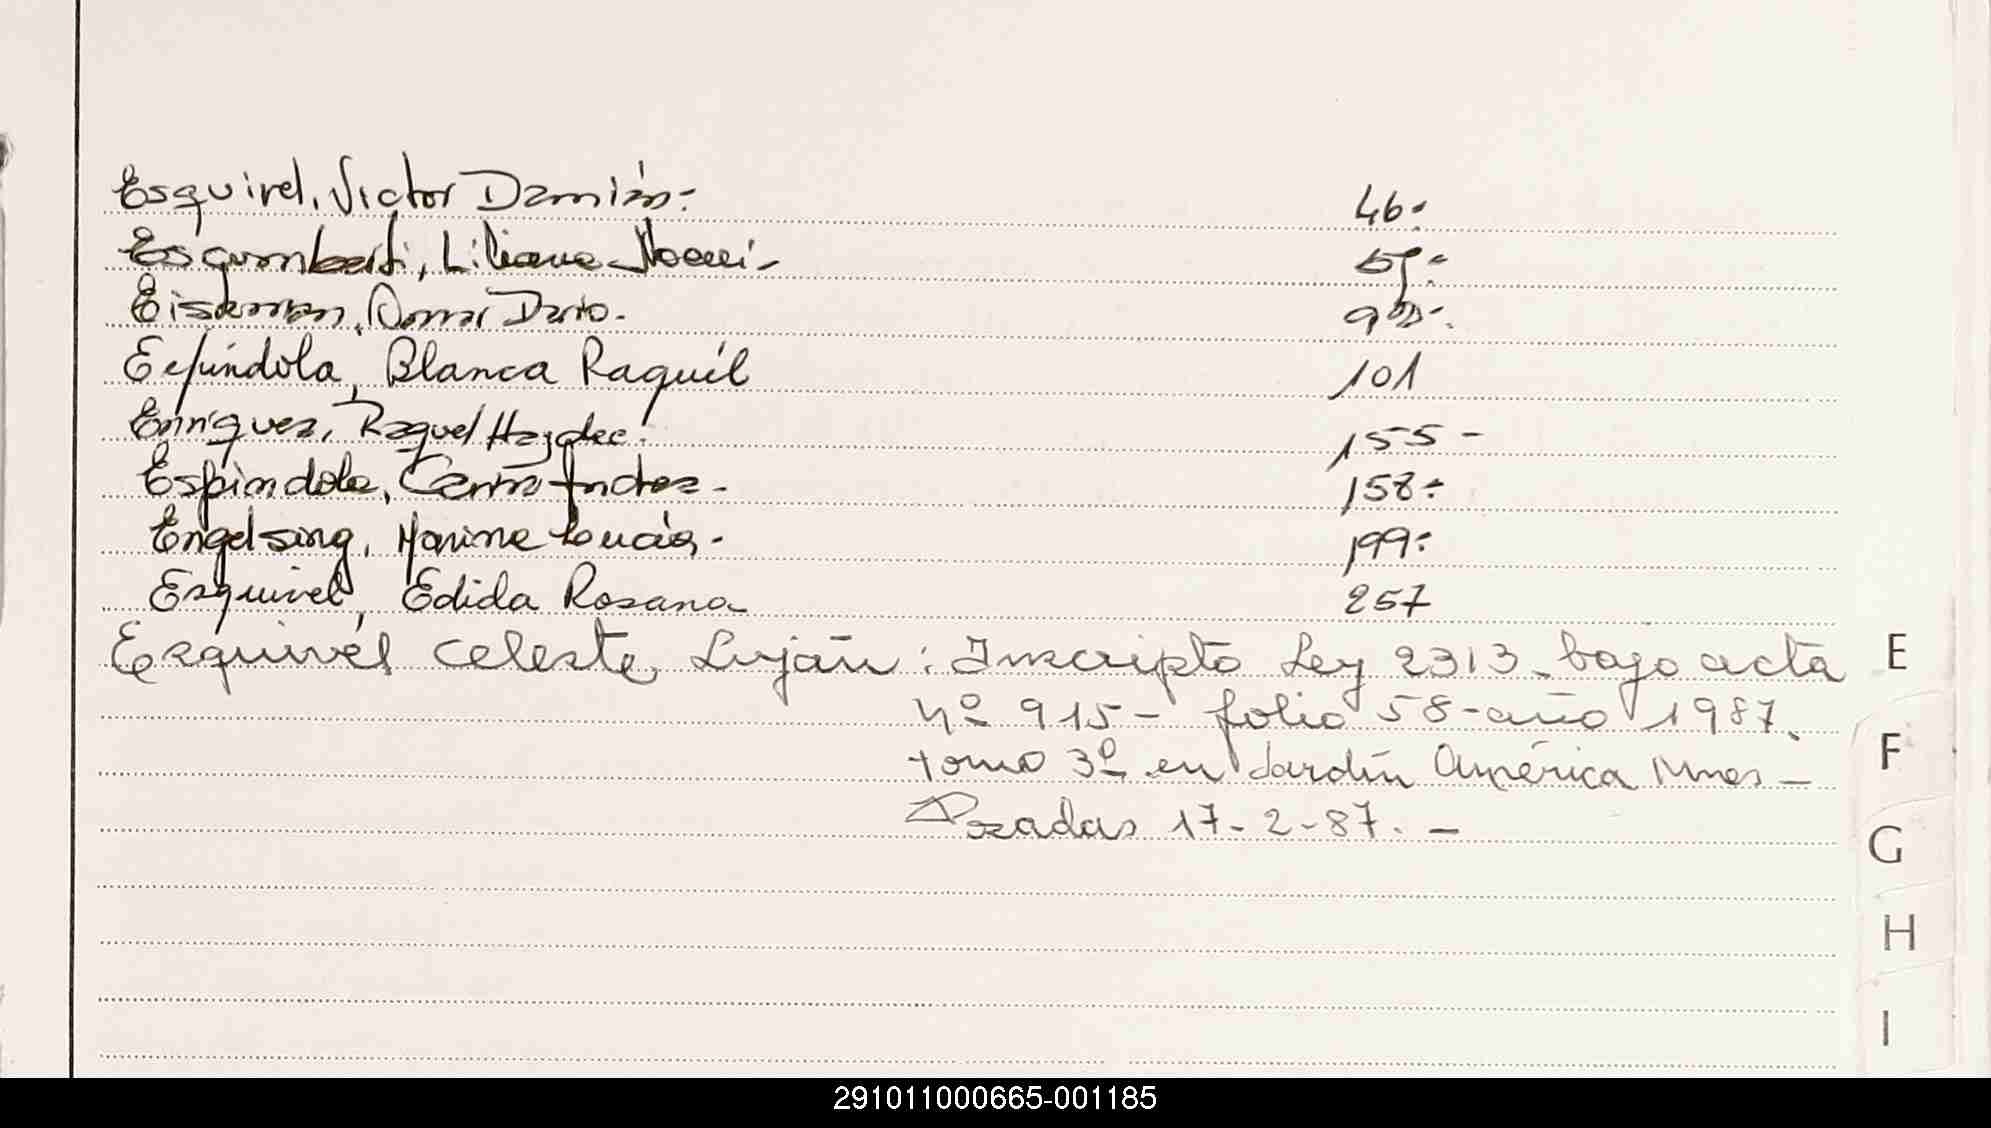 Esquivel, Victor Damián.- 46.-
Liliana Noemí.-
Eiseman, Omar Dario.-
Espíndola, Blanca Raquél 101
Enríquez, Raquel Haydee.- 155-
Espindola, 158.-
Engelsing, 199.-
Esquivel, Edida Rosana 257
Esquivél Celeste Luján: Inscripto Ley 2313. bajo acta
Nº 915 - folio 58 - año 1987.
tomo 3º en Jardín América Mnes -
Posadas 17-2-87. -
E
F
G
H
I
291011000665-001185